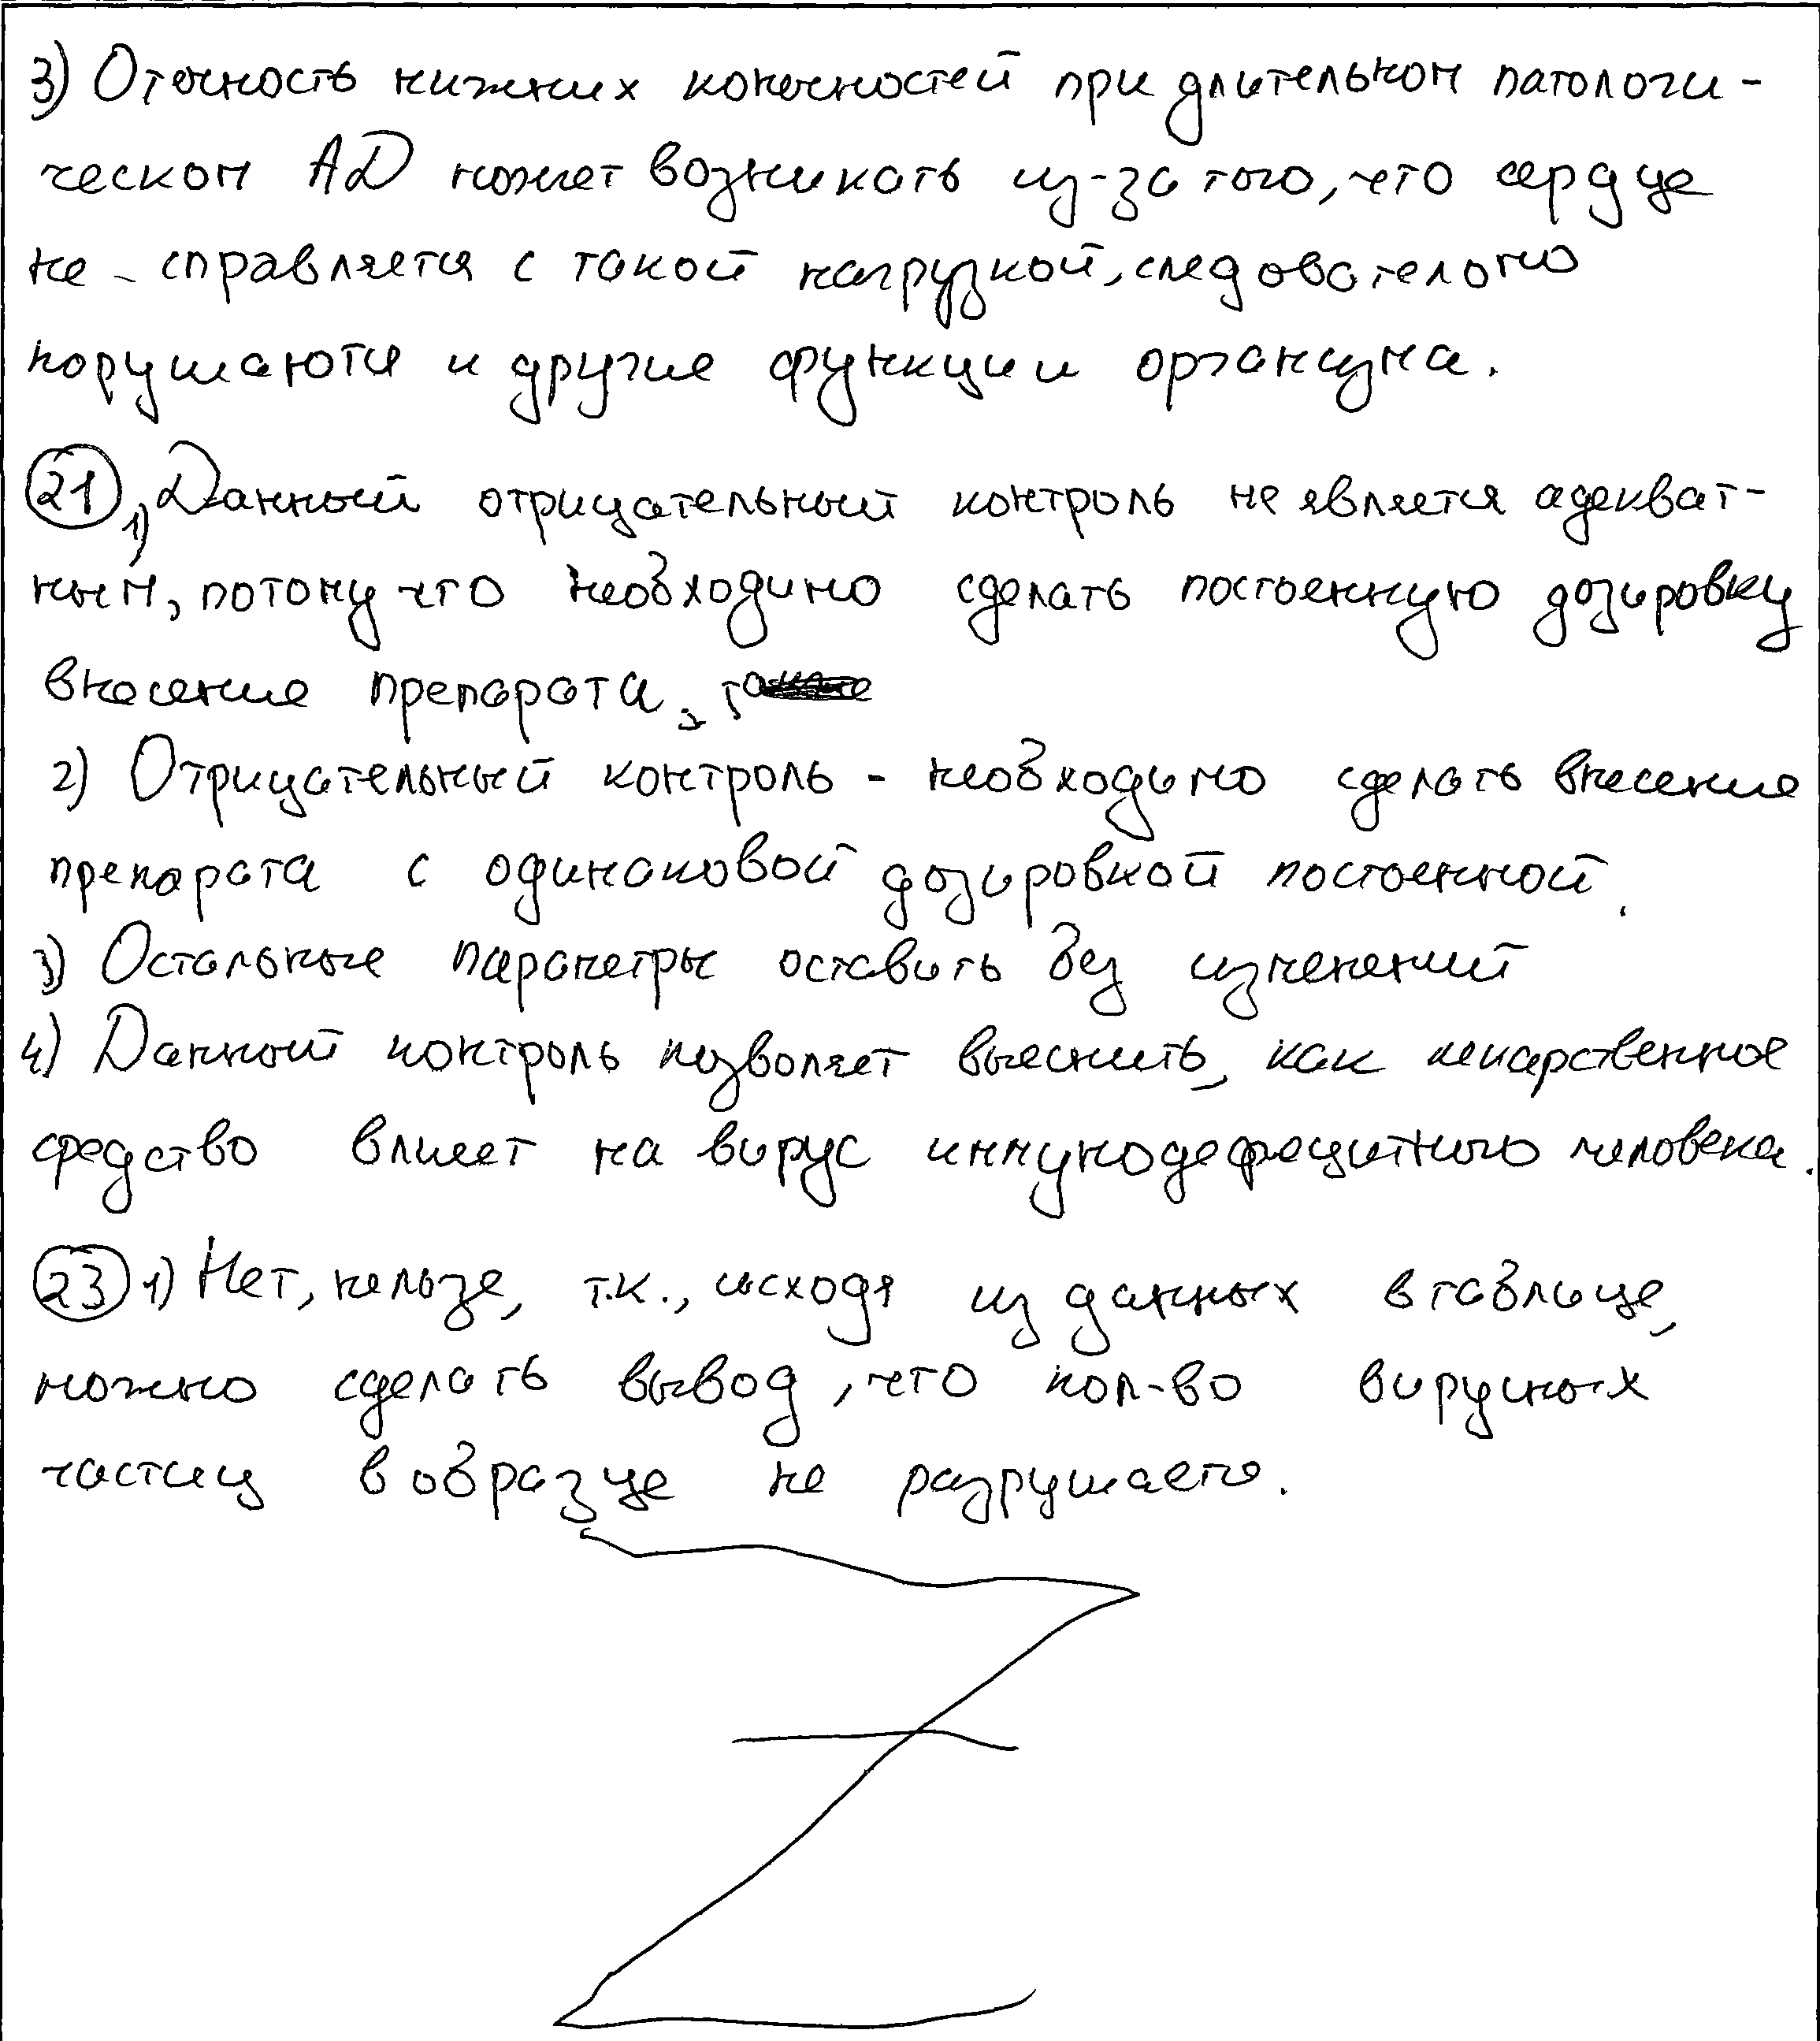 3) Отечность нижних конечностей при длительном патологи-
ческом АД может возникать из-за того, что сердце
не справляется с такой нагрузкой, следовательно
нарушаются и другие функции организма.
21 1) Данный отрицательный контроль не является адекват-
ным, потому что необходимо сделать постоенную дозировку
внесение препарата.
2) Отрицательный контроль - необходимо сделать внесение
препарата с одинаковой дозировкой постоенной.
3) Остальные параметры оставить без изменений
4) Данный контроль позволяет выеснить, как лекарственное
средство влиеет на вирус иммунодефецитного человека.
23 1) Нет, нельзе, т.к., исходя из данных в таблице,
можно сделать вывод, что кол-во вирусных
частиц в образце не разрушаето.